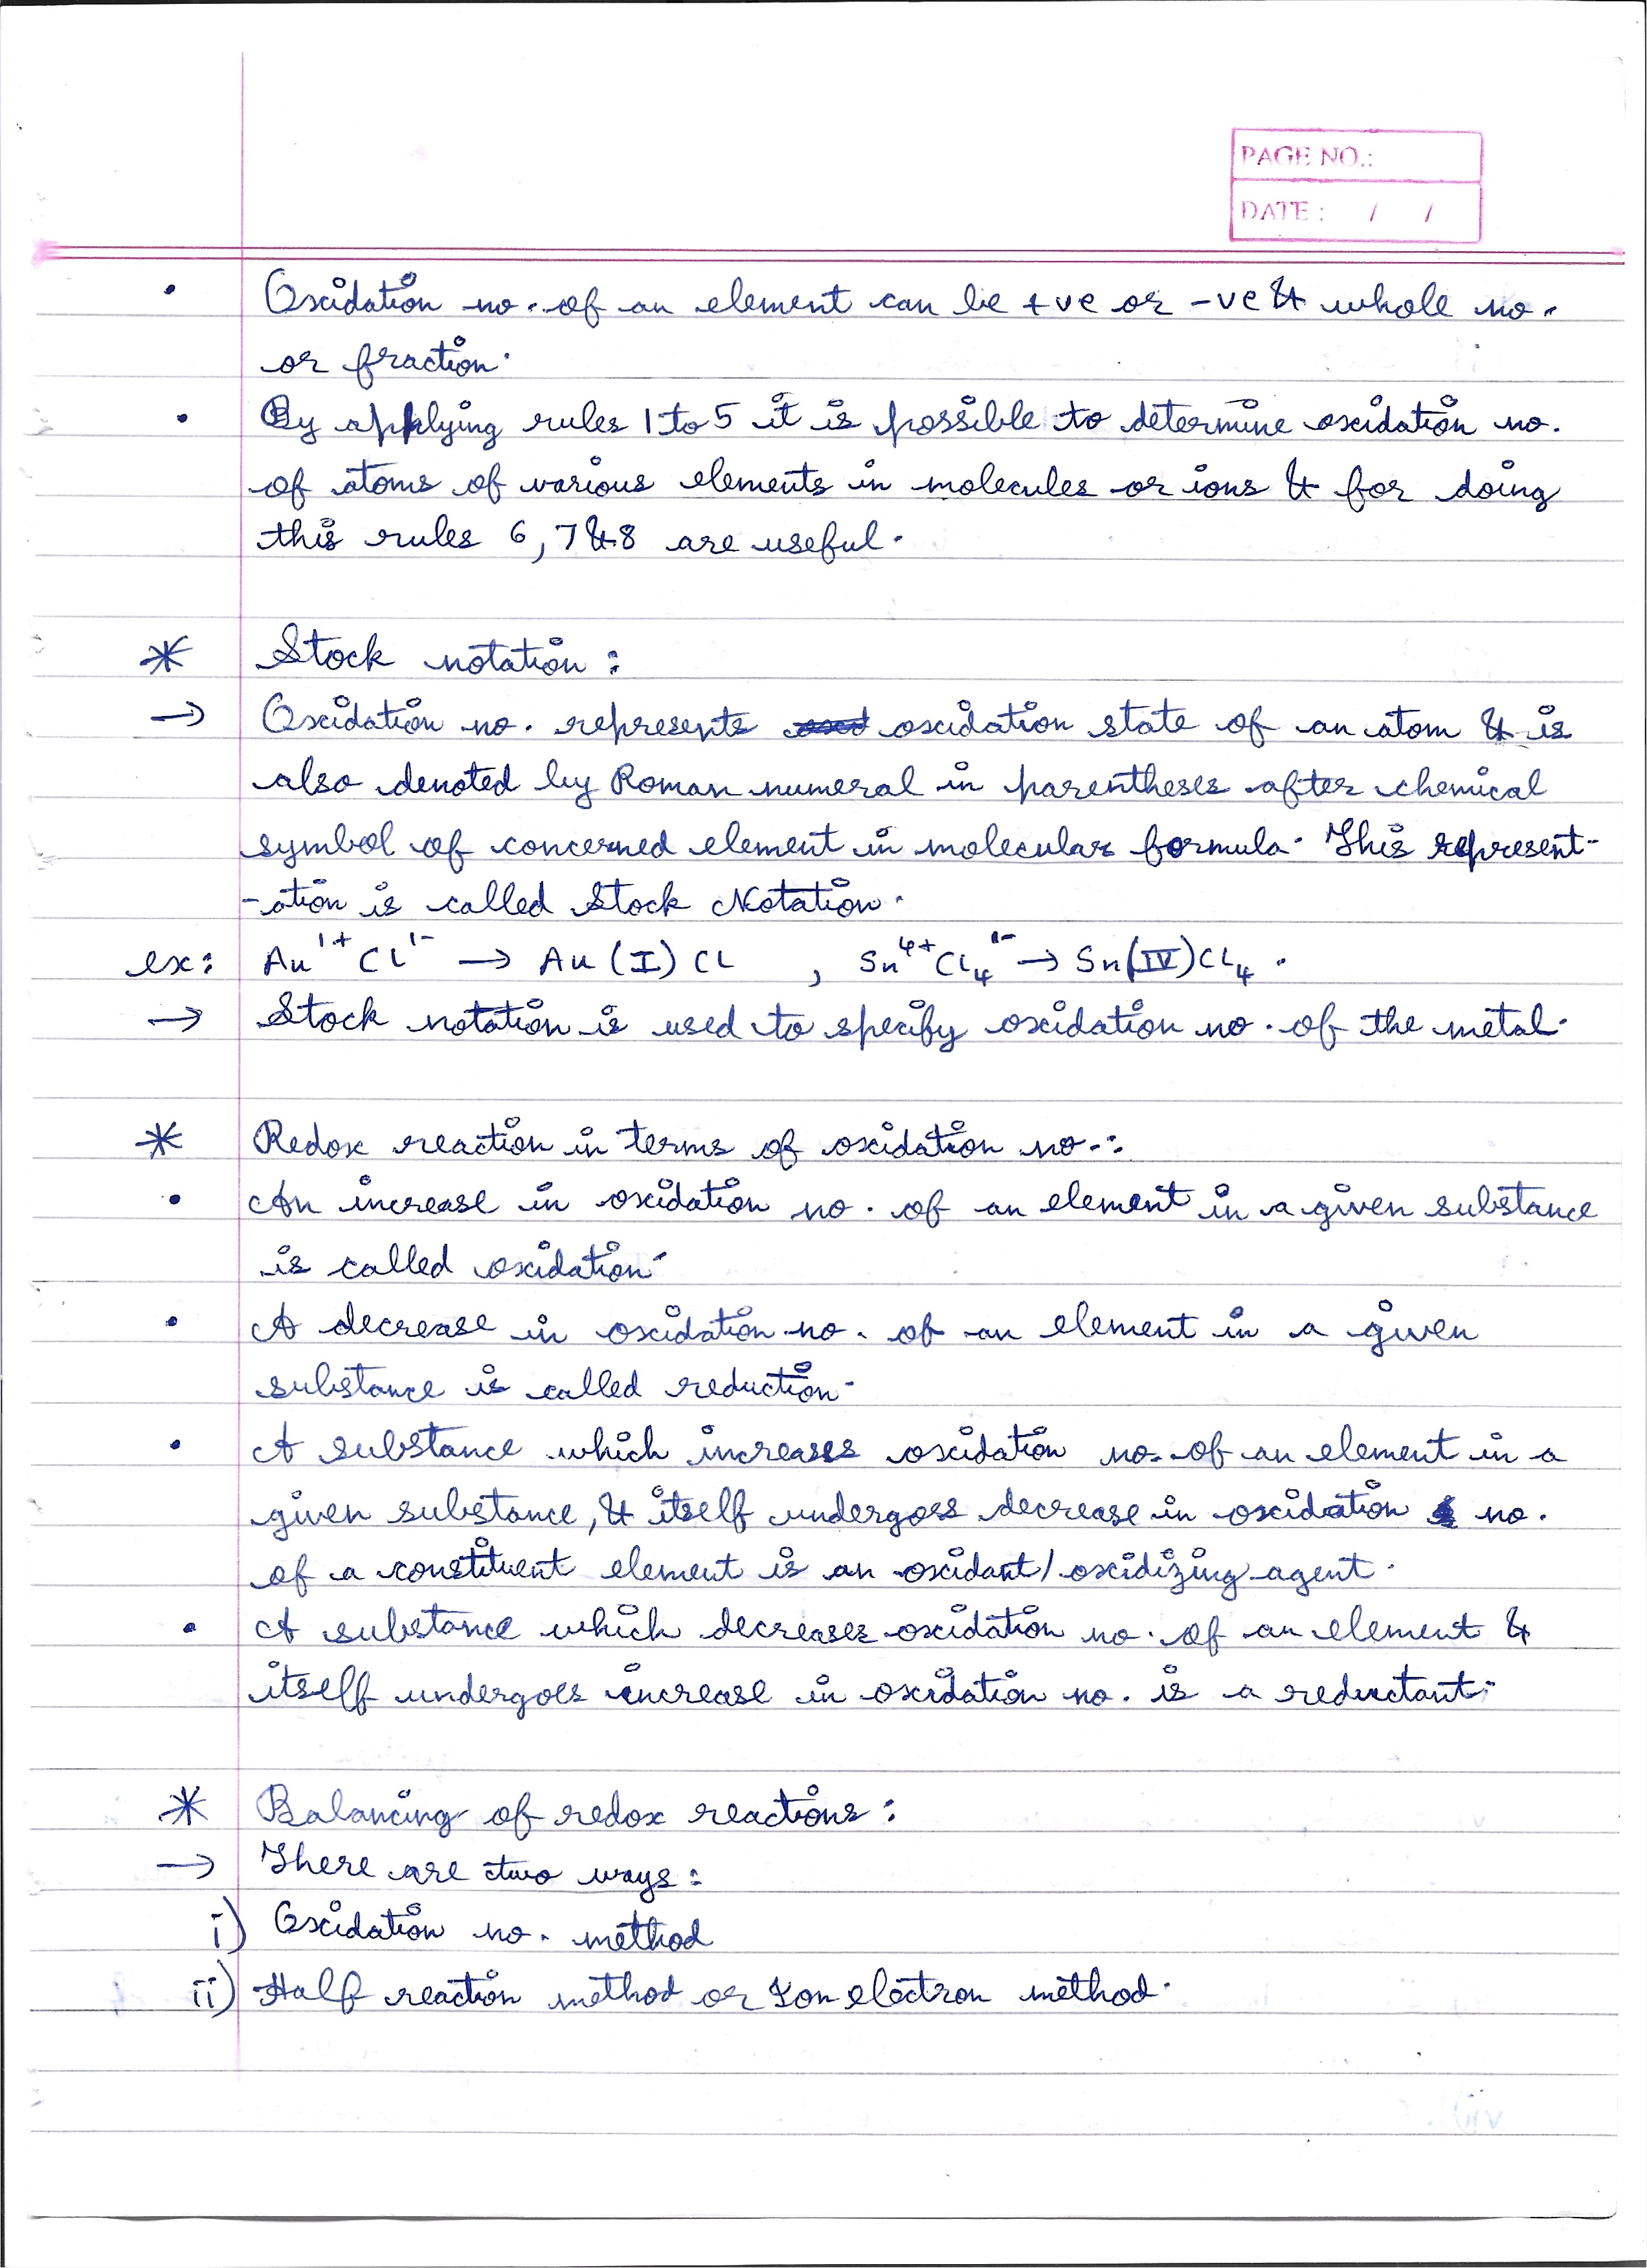 PAGE NO.:
DATE : / /
• Oxidation no. of an element can be +ve or -ve & whole no.
or fraction.
• By applying rules 1 to 5 it is possible to determine oxidation no.
of atoms of various elements in molecules or ions & for doing
this rules 6, 7 & 8 are useful.
* Stock notation :
→ Oxidation no. represents oxidation state of an atom & is
also denoted by Roman numeral in parentheses after chemical
symbol of concerned element in molecular formula. This represent-
-ation is called Stock Notation.
ex: Au¹⁺ Cl¹⁻ → Au (I) Cl , Sn⁴⁺Cl₄¹⁻ → Sn(IV)Cl₄ .
→ Stock notation is used to specify oxidation no. of the metal.
* Redox reaction in terms of oxidation no.:
• An increase in oxidation no. of an element in a given substance
is called oxidation.
• A decrease in oxidation no. of an element in a given
substance is called reduction.
• A substance which increases oxidation no. of an element in a
given substance, & itself undergoes decrease in oxidation no.
of a constituent element is an oxidant / oxidizing agent.
• A substance which decreases oxidation no. of an element &
itself undergoes increase in oxidation no. is a reductant.
* Balancing of redox reactions :
→ There are two ways :
i) Oxidation no. method
ii) Half reaction method or Ion electron method.